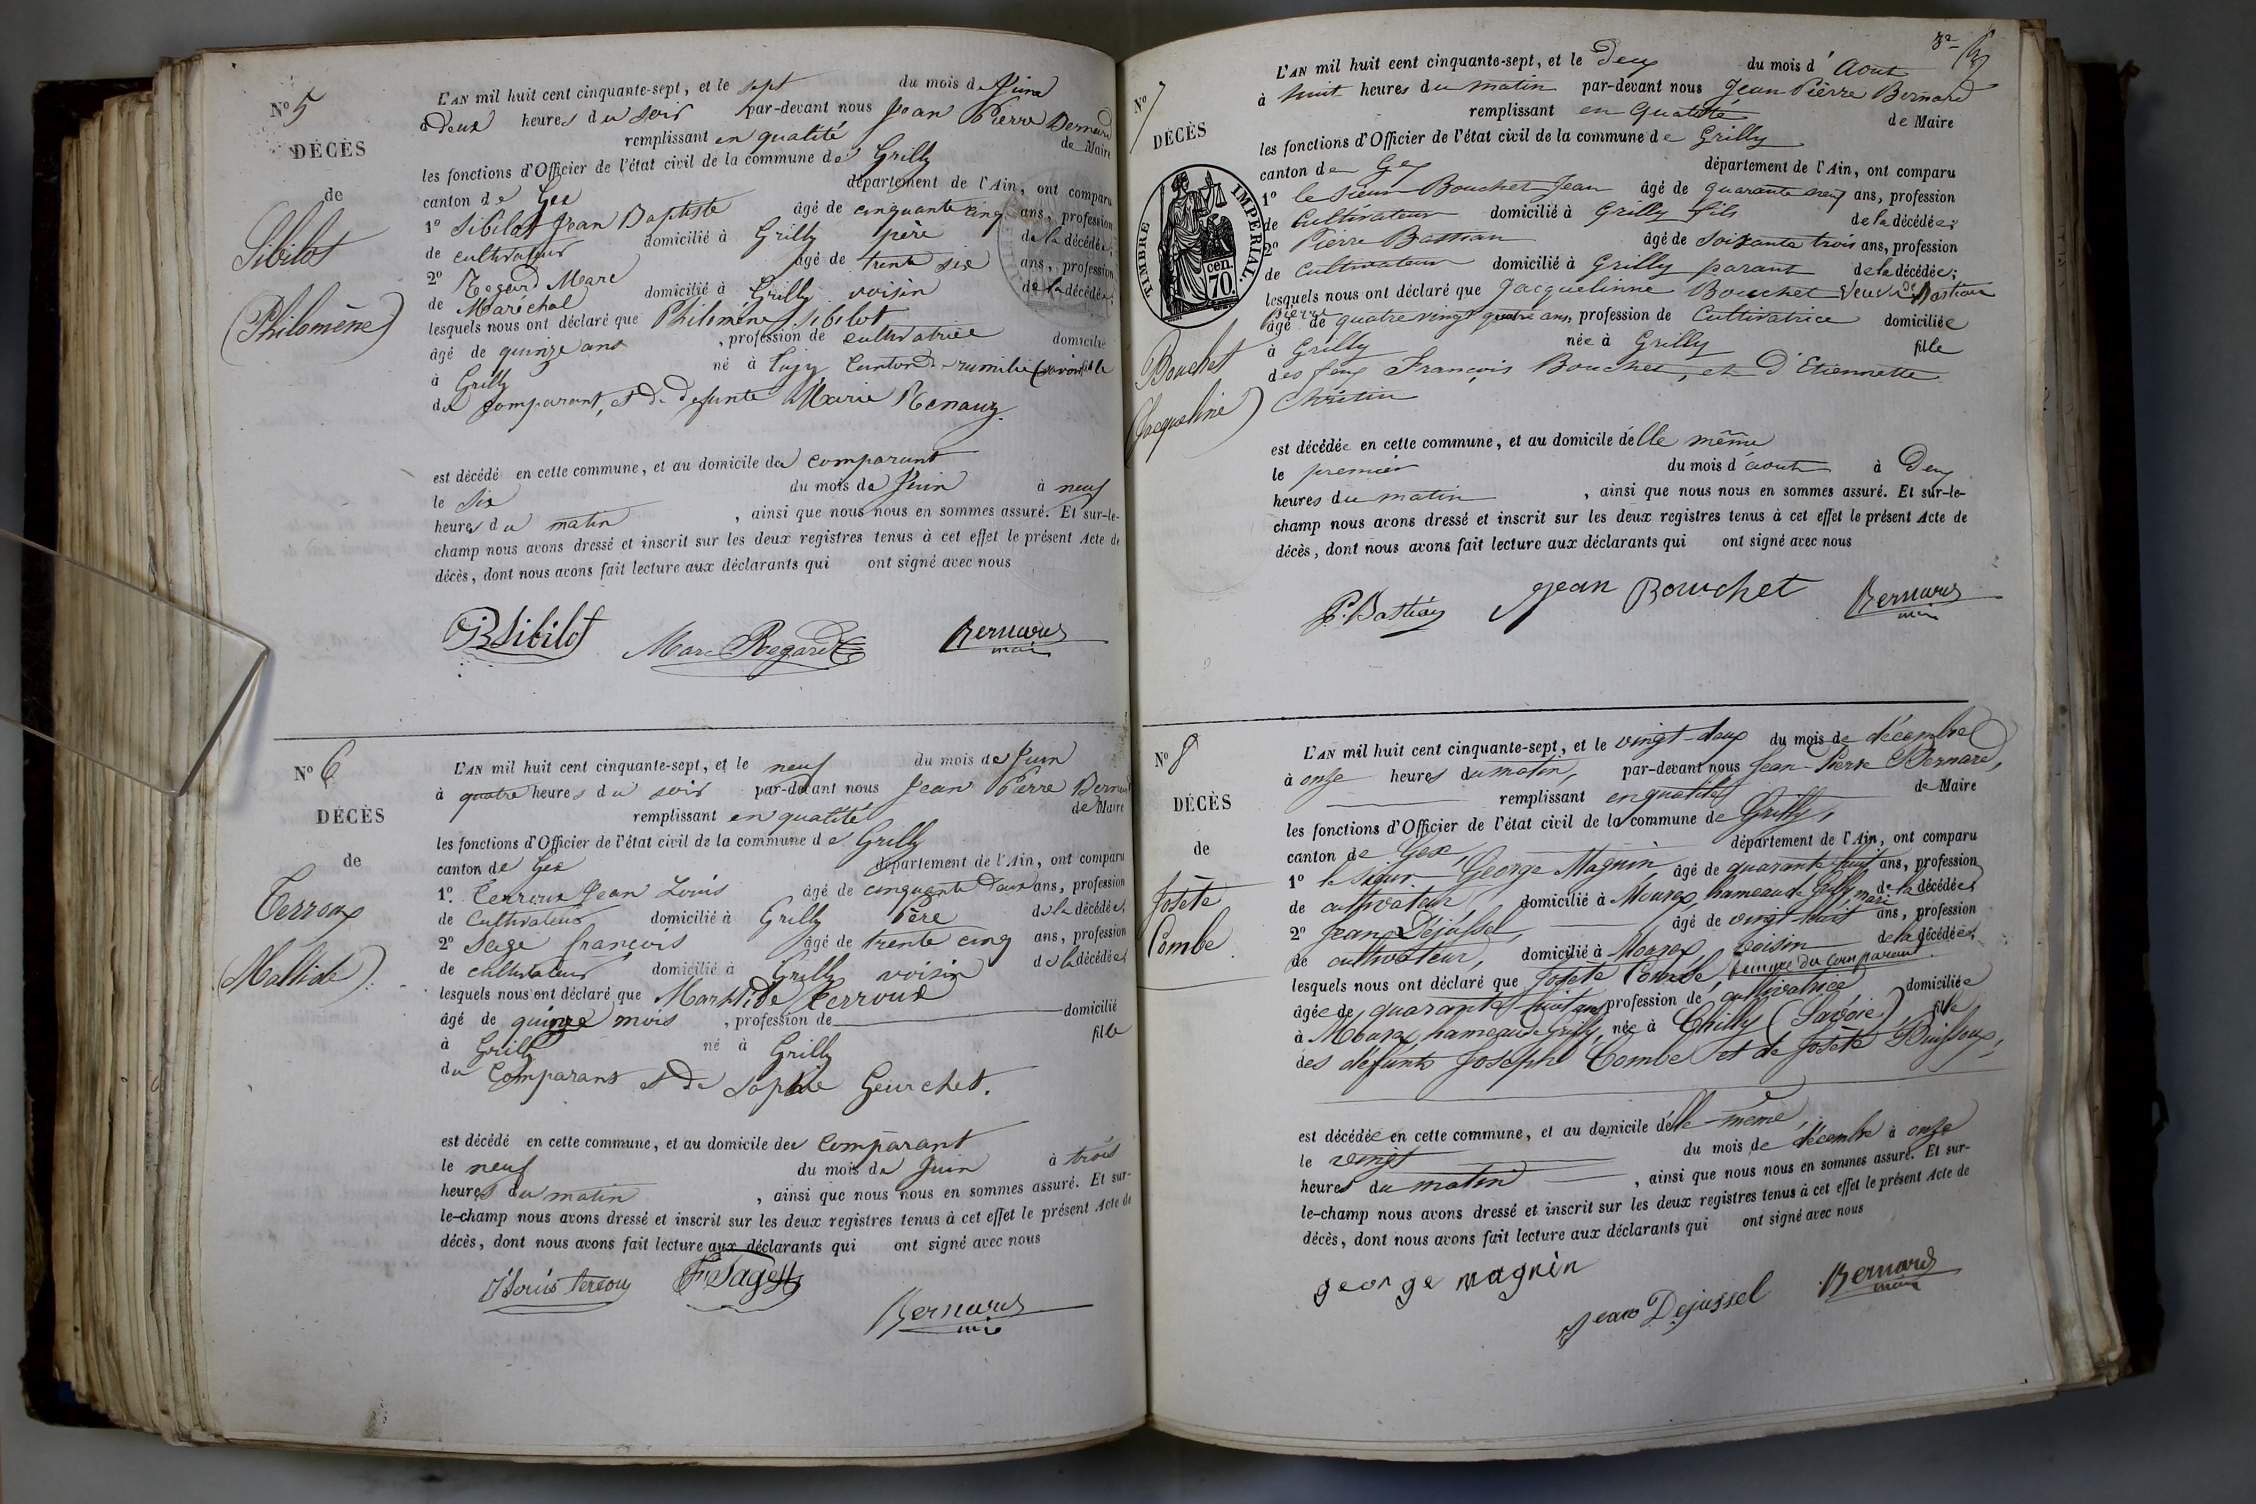 N° 5
DÉCÈS
de
Sibilot
(Philomène)
L'AN mil huit cent cinquante-sept, et le sept du mois de Juin
à Deux heures du soir par-devant nous Jean Pierre Bernard
remplissant en qualité de Maire
les fonctions d'Officier de l'état civil de la commune de Grilly
canton de Gex département de l'Ain, ont comparu
1° Sibilot Jean Baptiste âgé de cinquante cinq ans, profession
de cultivateur domicilié à Grilly père de la décédée;
2° Regard Marc âgé de trente six ans, profession
de Maréchal domicilié à Grilly voisin de la décédée,
lesquels nous ont déclaré que Philomène Sibilot
âgé de quinze ans, profession de cultivatrice domicilié
à Grilly né à Canton de rumilie (savoie) fille
du comparant, et de defunte Marie Renauz.
est décédé en cette commune, et au domicile du comparant
le six du mois de Juin à neuf
heures du matin, ainsi que nous nous en sommes assuré. Et sur-le-
champ nous avons dressé et inscrit sur les deux registres tenus à cet effet le présent Acte de
décès, dont nous avons fait lecture aux déclarants qui ont signé avec nous
JB Sibilot Marc Regard Bernard
maire
N° 6
DÉCÈS
de
Terroux
(Maltide).
L'AN mil huit cent cinquante-sept, et le neuf du mois de Juin
à quatre heures du soir par-devant nous Jean Pierre Bernard
remplissant en qualité de Maire
les fonctions d'Officier de l'état civil de la commune de Grilly
canton de Gex département de l'Ain, ont comparu
1°. Terroux Jean Louis âgé de cinquante Deux ans, profession
de Cultivateur domicilié à Grilly Père de la décédée,
2° Sage françois âgé de trente cinq ans, profession
de cultivateur domicilié à Grilly voisin de la décédée,
lesquels nous ont déclaré que Terroux
âgé de quinze mois, profession de domicilié
à Grilly né à Grilly fille
du Comparant et de Sophie Geurchet.
est décédé en cette commune, et au domicile du Comparant
le neuf du mois de Juin à trois
heures du matin, ainsi que nous nous en sommes assuré. Et sur-
le-champ nous avons dressé et inscrit sur les deux registres tenus à cet effet le présent Acte de
décès, dont nous avons fait lecture aux déclarants qui ont signé avec nous
Bernard
maire
N° 7
DÉCÈS
TIMBRE IMPÉRIAL.
70.
cen.
Bouchet
(Jacqueline)
L'AN mil huit cent cinquante-sept, et le Deux du mois d'Aout
à huit heures du matin par-devant nous Jean Pierre Bernard
remplissant en qualité de Maire
les fonctions d'Officier de l'état civil de la commune de Grilly
canton de Gex département de l'Ain, ont comparu
1° le sieur Bouchet Jean âgé de quarante neuf ans, profession
de Cultivateur domicilié à Grilly fils de la décédée;
2° Pierre Bastian âgé de soixante trois ans, profession
de Cultivateur domicilié à Grilly parant de la décédée;
lesquels nous ont déclaré que Jacquelinne Bouchet veuve de Bastian
Pierre
âgé de quatre vingt quatre ans, profession de Cultivatrice domiciliée
à Grilly née à Grilly fille
des feux François Bouchet, et D'Etiennette
Chrétin
est décédée en cette commune, et au domicile d'elle même
le premier du mois d'aout à Deux
heures du matin, ainsi que nous nous en sommes assuré. Et sur-le-
champ nous avons dressé et inscrit sur les deux registres tenus à cet effet le présent Acte de
décès, dont nous avons fait lecture aux déclarants qui ont signé avec nous
P. Bastian Jean Bouchet Bernard
maire
N° 8
DÉCÈS
de
Josète
Combe
L'AN mil huit cent cinquante-sept, et le vingt-deux du mois de décembre
à onze heures du matin, par-devant nous Jean-Pierre Bernard,
remplissant en qualité de Maire
les fonctions d'Officier de l'état civil de la commune de Grilly,
canton de Gex, département de l'Ain, ont comparu
1° le sieur George Magnin âgé de quarante huit ans, profession
de cultivateur, domicilié à Mourex hameau de Grilly, mari de la décédée
2° Jean Déjussel, âgé de vingt huit ans, profession
de cultivateur, domicilié à Mourex, voisin de la décédée,
lesquels nous ont déclaré que Josète Combe, femme du comparant
âgée de quarante huit ans profession de cultivatrice domiciliée
à Mourex hameau de Grilly, née à Chilly (Savoie) fille
des défunts Joseph Combe et de Josète Buissoux,
est décédée en cette commune, et au domicile d'elle-même,
le vingt du mois de décembre à onze
heures du matin, ainsi que nous nous en sommes assuré. Et sur-
le-champ nous avons dressé et inscrit sur les deux registres tenus à cet effet le présent Acte de
décès, dont nous avons fait lecture aux déclarants qui ont signé avec nous
george magnin
Jean Dejussel
Bernard
maire